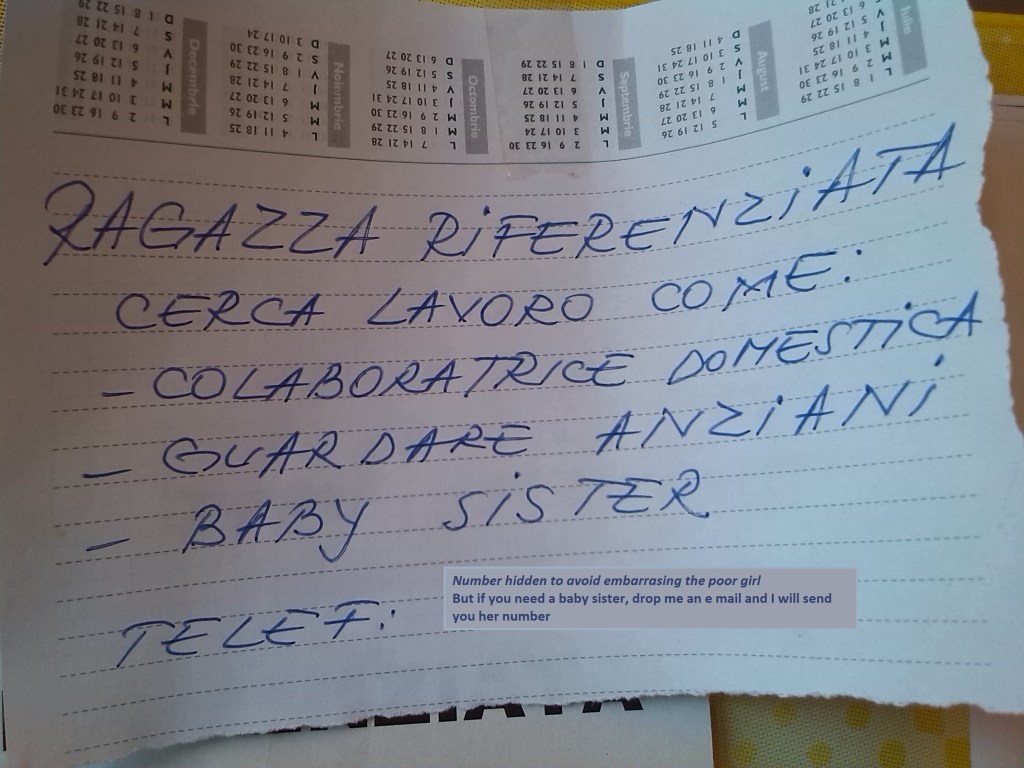 Iulie
L 1 8 15 22 29
M 2 9 16 23 30
M 3 10 17 24 31
J 4 11 18 25
V 5 12 19 26
S 6 13 20 27
14 21 28
August
L 5 12 19 26
M 6 13 20 27
M 7 14 21 28
J 1 8 15 22 29
V 2 9 16 23 30
S 3 10 17 24 31
D 4 11 18 25
Septembrie
L 2 9 16 23 30
M 3 10 17 24
M 4 11 18 25
J 5 12 19 26
V 6 13 20 27
S 7 14 21 28
D 1 8 15 22 29
Octombrie
L 7 14 21 28
M 1 8 15 22 29
M 2 9 16 23 30
J 3 10 17 24 31
V 4 11 18 25
S 5 12 19 26
D 6 13 20 27
Noiembrie
L 4 11 18 25
M 5 12 19 26
M 6 13 20 27
J 7 14 21 28
V 1 8 15 22 29
S 2 9 16 23 30
D 3 10 17 24
Decembrie
L 2 9 16 23 30
M 3 10 17 24 31
M 4 11 18 25
J 5 12 19 26
V 6 13 20 27
S 7 14 21 28
D 1 8 15 22 29
RAGAZZA RIFERENZIATA
CERCA LAVORO COME:
- COLABORATRICE DOMESTICA
- GUARDARE ANZIANI
- BABY SISTER
TELEF:
Number hidden to avoid embarrasing the poor girl
But if you need a baby sister, drop me an e mail and I will send
you her number